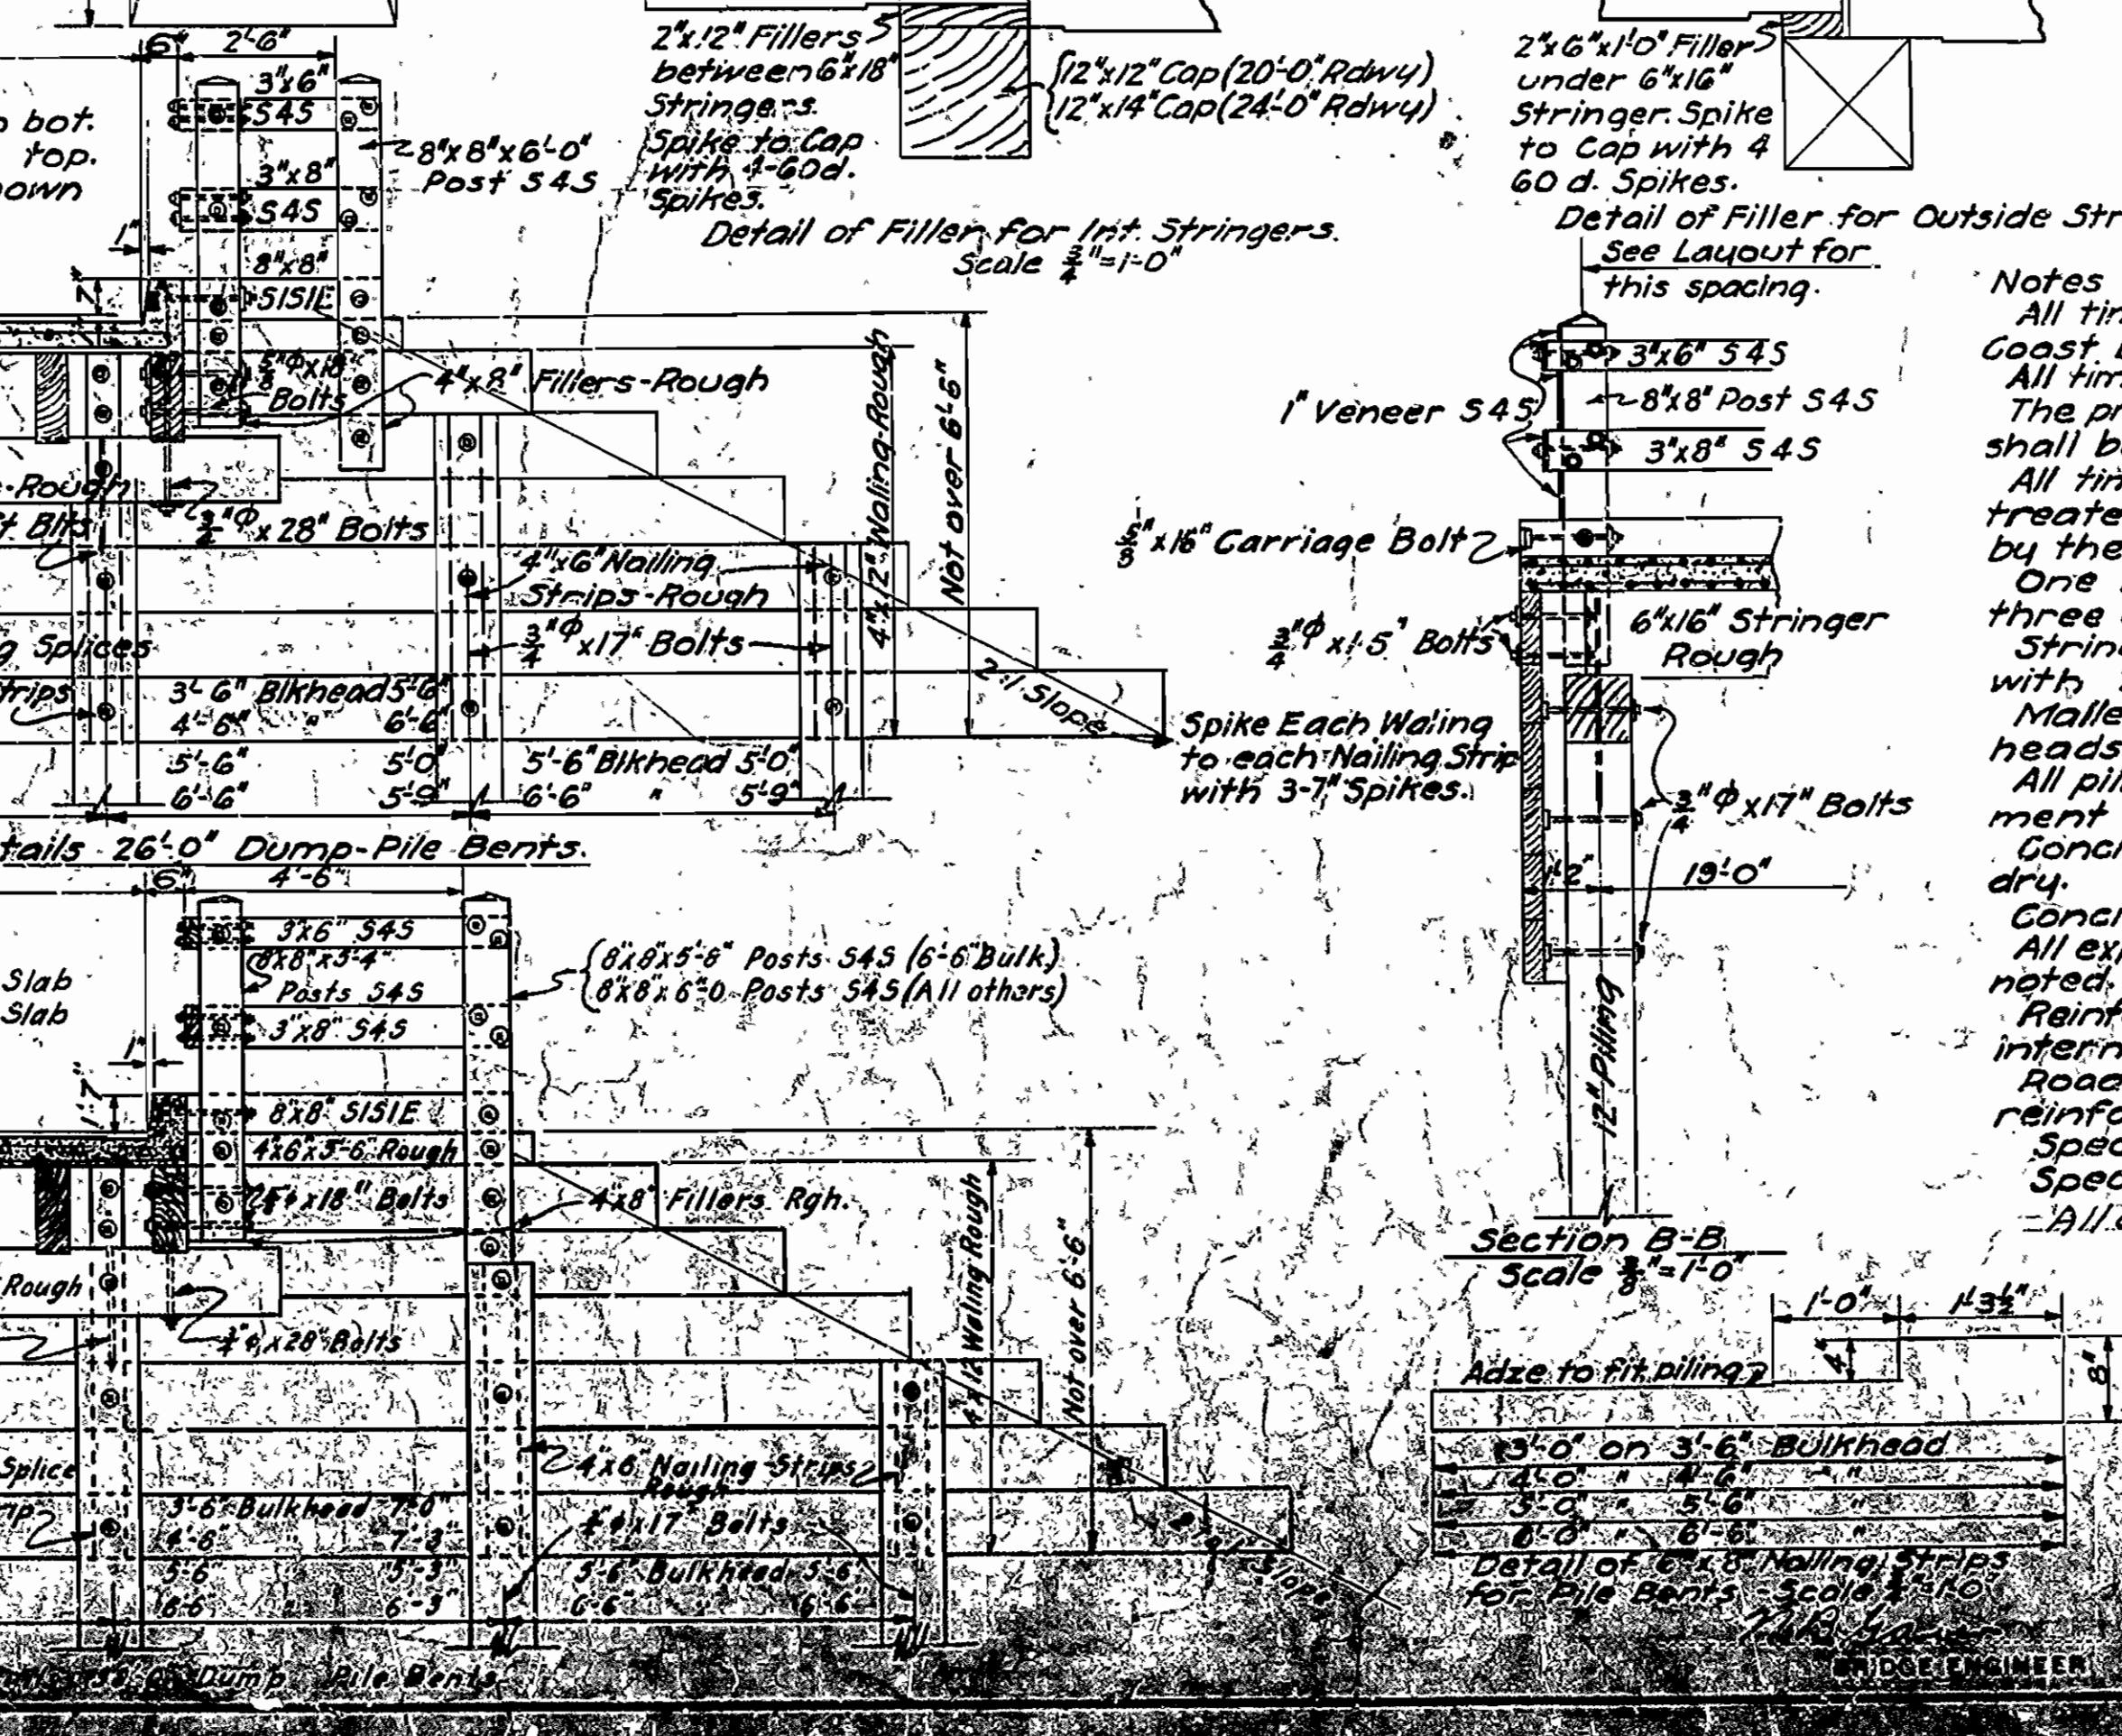 6"
2'-6"
3"x6"
S4S
bot.
top.
3"x8"
S4S
8"x8"x6'-0"
Post S4S
1"
8"x8"
7"
S1S1E
5/8"φx18"
Bolts
4"x8" Fillers-Rough
-Rough
3/4"φx28" Bolts
4"x6" Nailing
Strips-Rough
3/4"φx17" Bolts
Splices
3'-6" Blkhead 5'-6"
4'-6" " 6'-6"
5'-6" 5'-0"
6'-6" 5'-9"
5'-6" Blkhead 5'-0"
6'-6" " 5'-9"
4"x12" Waling-Rough
Not over 6'-6"
2:1 Slope
Spike Each Waling
to each Nailing Strip
with 3-7" Spikes.
26'-0" Dump-Pile Bents.
2"x12" Fillers
between 6"x18"
Stringers.
Spike to Cap
with 4-60d.
Spikes.
12"x12" Cap (20'-0" Rdwy)
12"x14" Cap (24'-0" Rdwy)
Detail of Filler for Int. Stringers.
Scale 3/4"=1'-0"
2"x6"x1'-0" Filler
under 6"x16"
Stringer. Spike
to Cap with 4
60 d. Spikes.
Detail of Filler for Outside Str
See Layout for
this spacing.
3"x6" S4S
8"x8" Post S4S
1" Veneer S4S
3"x8" S4S
5/8"x16" Carriage Bolt
6"x16" Stringer
Rough
3/4"φ x 1.5" Bolts
3/4"φx17" Bolts
1'-2"
19'-0"
12" Piling
Section B-B
Scale 3/8"=1'-0"
Notes
All
Coast
All
The
shall
All
treate
by the
One
three
with
heads
All
ment
dry.
All
noted.
intern
reinfo
All
6"
4'-6"
3"x6" S4S
8"x8"x5'-4"
Posts S4S
3"x8" S4S
Slab
Slab
8"x8"x5'-8" Posts S4S (6'-6" Bulk.)
8"x8"x6'-0 Posts S4S (All others)
1"
7"
8"x8" S1S1E
4"x6"x3'-6" Rough
x18" Bolts
4"x8" Fillers Rgh.
Rough
3/4"φx28" Bolts
4"x12 Waling Rough
Not over 6'-6"
Splice
4"x6" Nailing Strips
Rough
3/4"φx17" Bolts
3'-6" Bulkhead 7'-0"
4'-6" 7'-3"
5'-6" 5'-3"
6'-6 " 6'-3"
5'-6" Bulkhead 5'-6"
6'-6" " 6'-6"
Slope
Dump Pile Bents
1'-0"
1'-3½"
4"
8"
Adze to fit piling
3'-0" on 3'-6" Bulkhead
4'-0" " 4'-6" "
5'-0" " 5'-6" "
6'-0" " 6'-6" "
Detail of 6"x8" Nailing Strips
for Pile Bents
BRIDGE ENGINEER